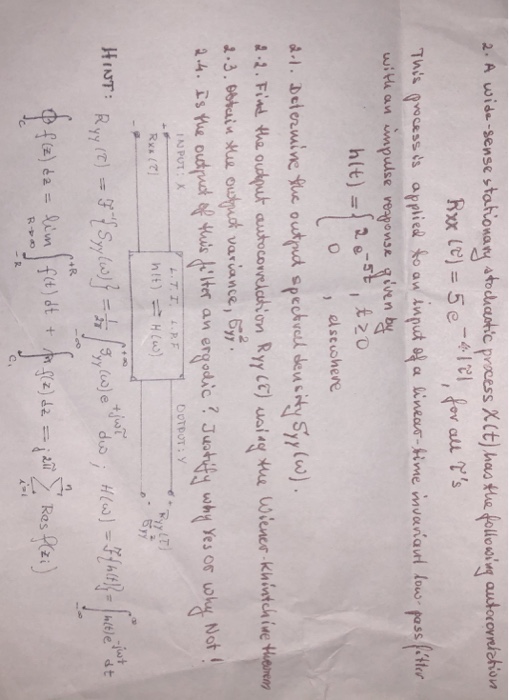 2. A wide-sense stationary stochastic process X(t) has the following autocorrelation
Rxx(τ) = 5e^{-4|τ|}, for all τ's
This process is applied to an input of a linear-time invariant low-pass filter
with an impulse response given by
h(t) = { 2e^{-5t}, t ≥ 0
0, elsewhere
2.1. Determine the output spectral density Syy(ω).
2.2. Find the output autocorrelation Ryy(τ) using the Wiener-Khintchine theorem
2.3. Obtain the output variance, σ²yy.
2.4. Is the output of this filter an ergodic? Justify why Yes or why Not!
INPUT: X
L.T.I. L.P.F
OUTPUT: Y
+
Rxx(τ)
-
h(t) ⇌ H(ω)
+
Ryy(τ)
σ²yy
-
HINT: Ryy(τ) = ℱ⁻¹{Syy(ω)} = 1/2π ∫_{-∞}^{+∞} Syy(ω) e^{+jωτ} dω ; H(ω) = ℱ{h(t)} = ∫_{-∞}^{∞} h(t) e^{-jωt} dt
∮_C f(z) dz = lim_{R→∞} ∫_{-R}^{+R} f(t) dt + ∫_{C₁} f(z) dz = j2π Σ_{i=1}^{n} Res f(zᵢ)